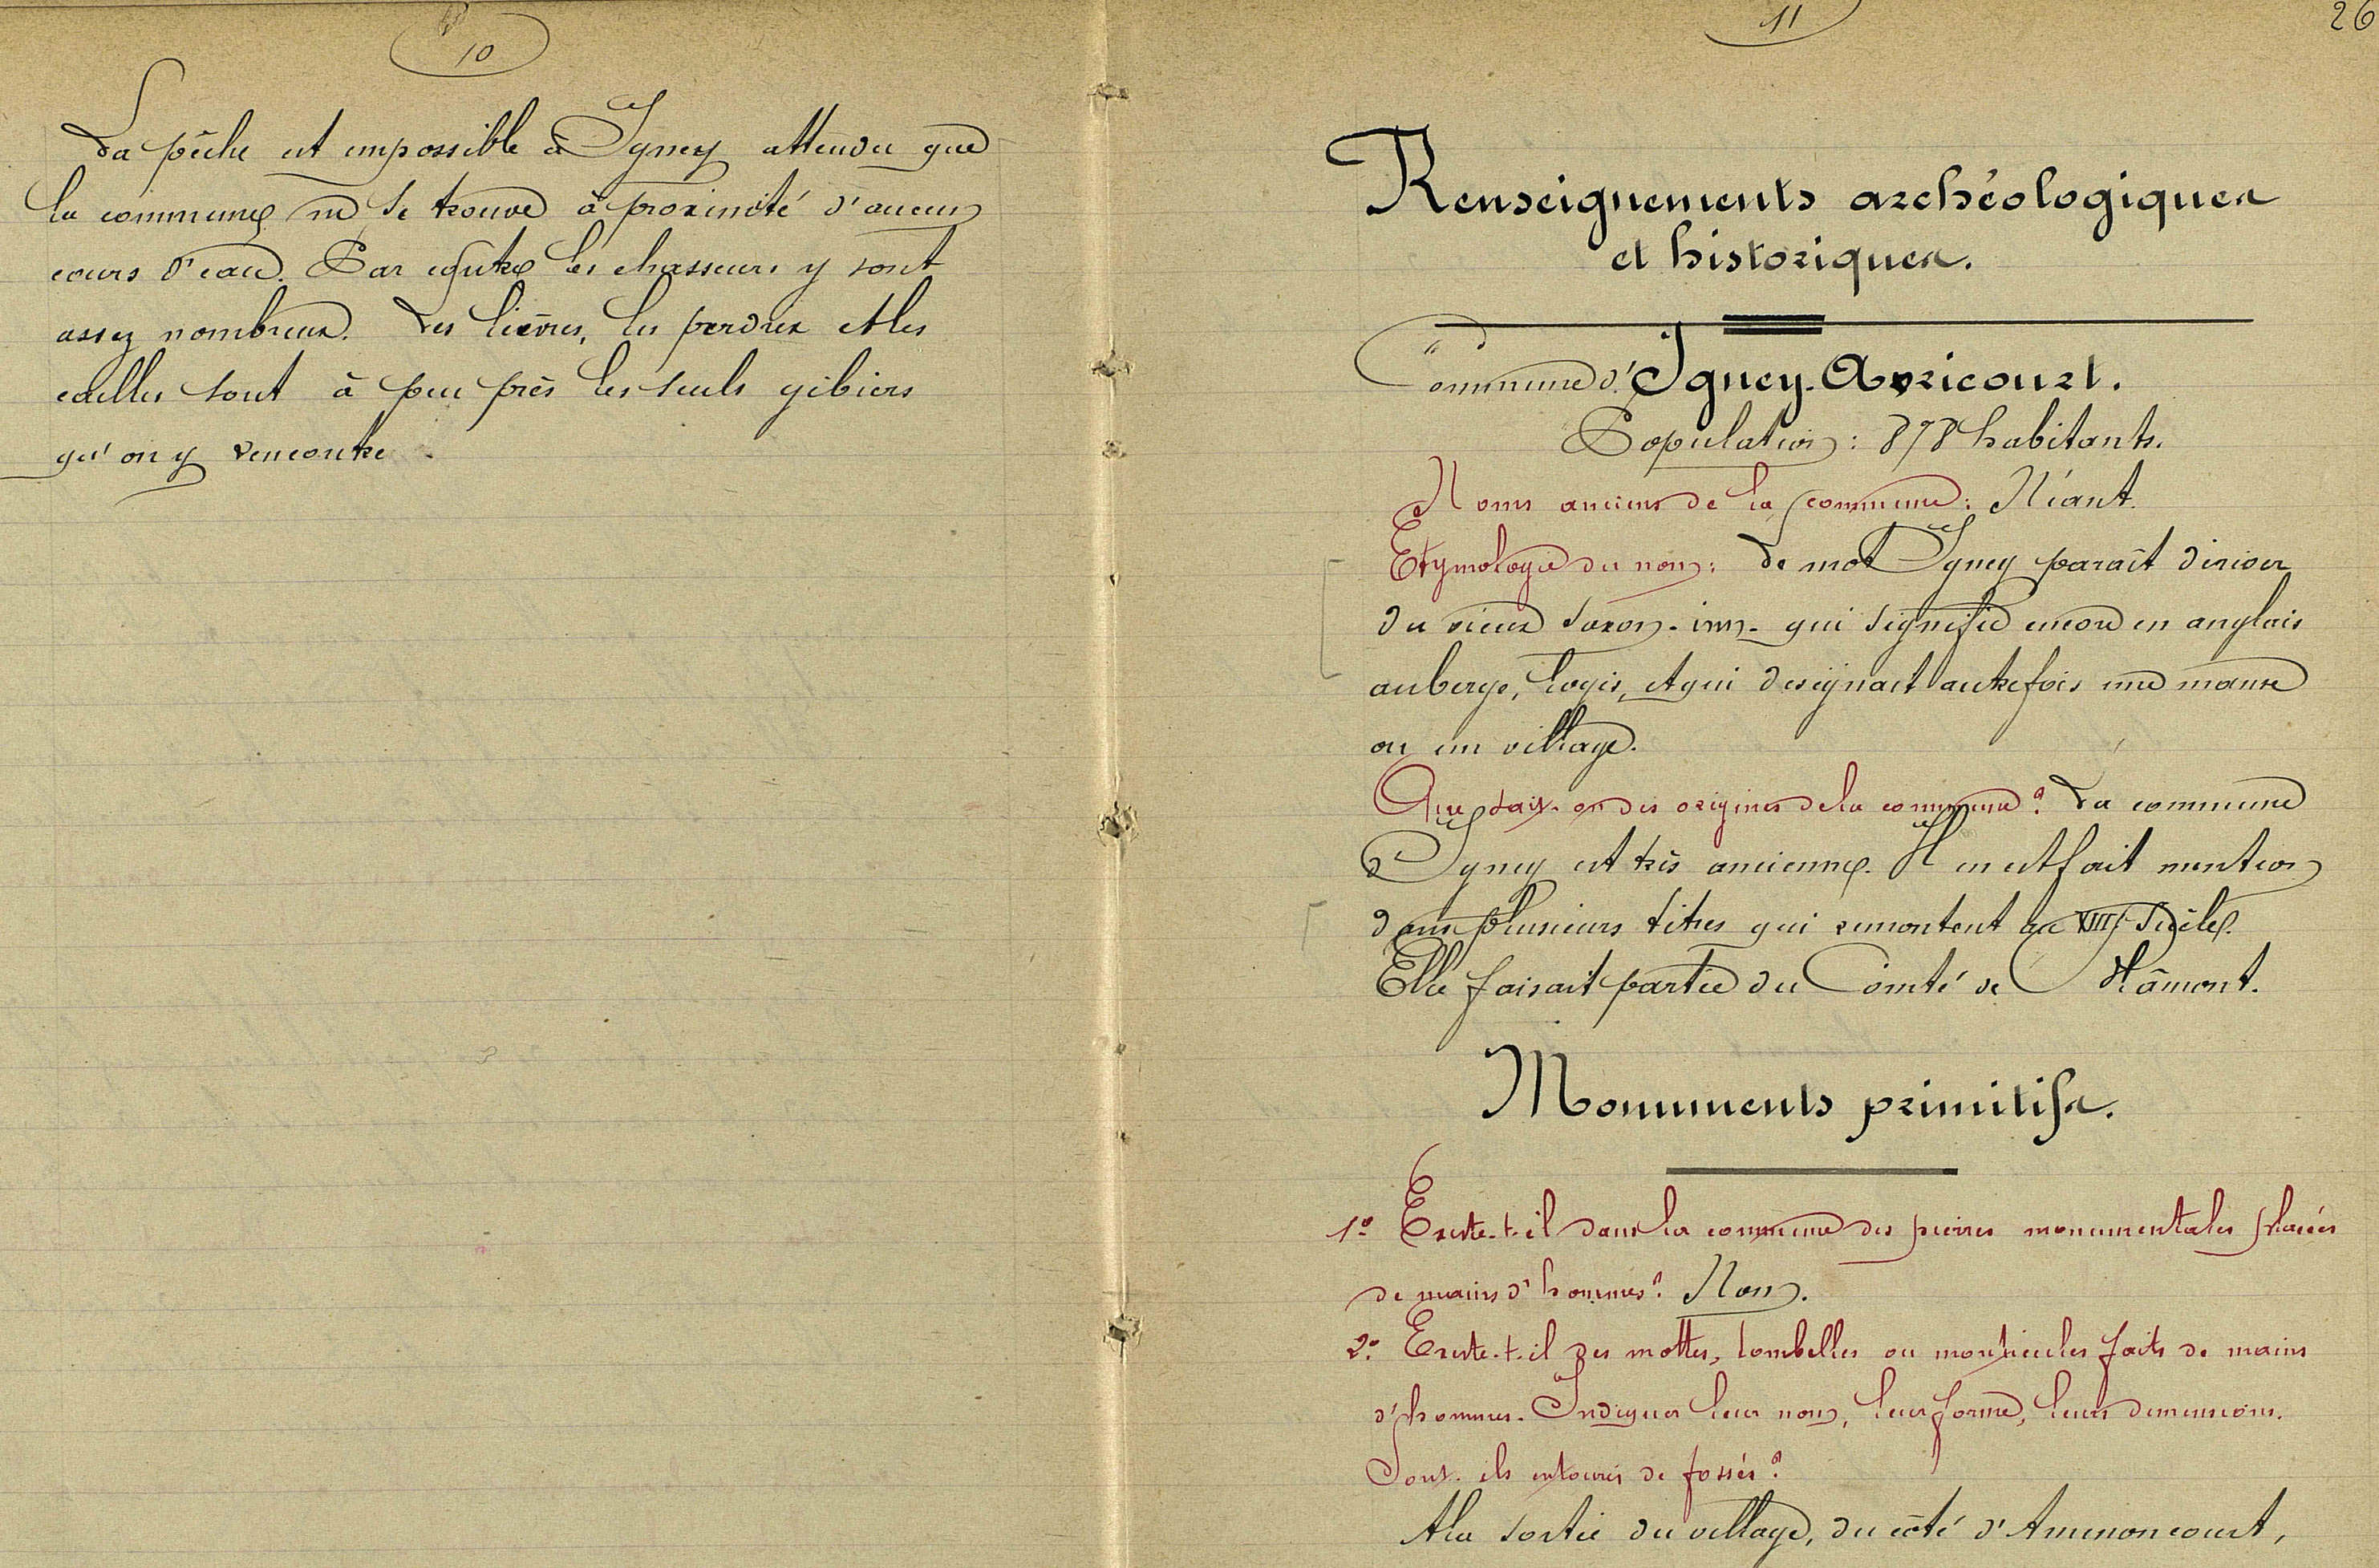 10
La pêche est impossible à Igney attendu que
la commune ne se trouve à proximité d'aucun
cours d'eau. Par contre les chasseurs y sont
assez nombreux. Les lièvres, les perdrix et les
cailles sont à peu près les seuls gibiers
qu'on y rencontre.
11
26
Renseignements archéologiques
et historiques.
Commune d'Igney-Avricourt.
Population : 878 habitants.
Noms anciens de la commune : Néant.
Etymologie du nom : Le mot Igney paraît dériver
du vieux saxon - inn - qui signifie encore en anglais
auberge, logis, et qui designait autrefois une manse
ou un village.
Que sait-on des origines de la commune ? La commune
d'Igney est très ancienne. Il en est fait mention
dans plusieurs titres qui remontent au XIIIe siècle.
Elle faisait partie du Comté de Blâmont.
Monuments primitifs.
1º Existe-t-il dans la commune des pierres monumentales placées
de mains d'hommes ? Non.
2º Existe-t-il des mottes, tombelles ou monticules faits de mains
d'hommes. Indiquer leur nom, leur forme, leurs dimensions.
Sont-ils entourés de fossés ?
A la sortie du village, du côté d'Amenoncourt,